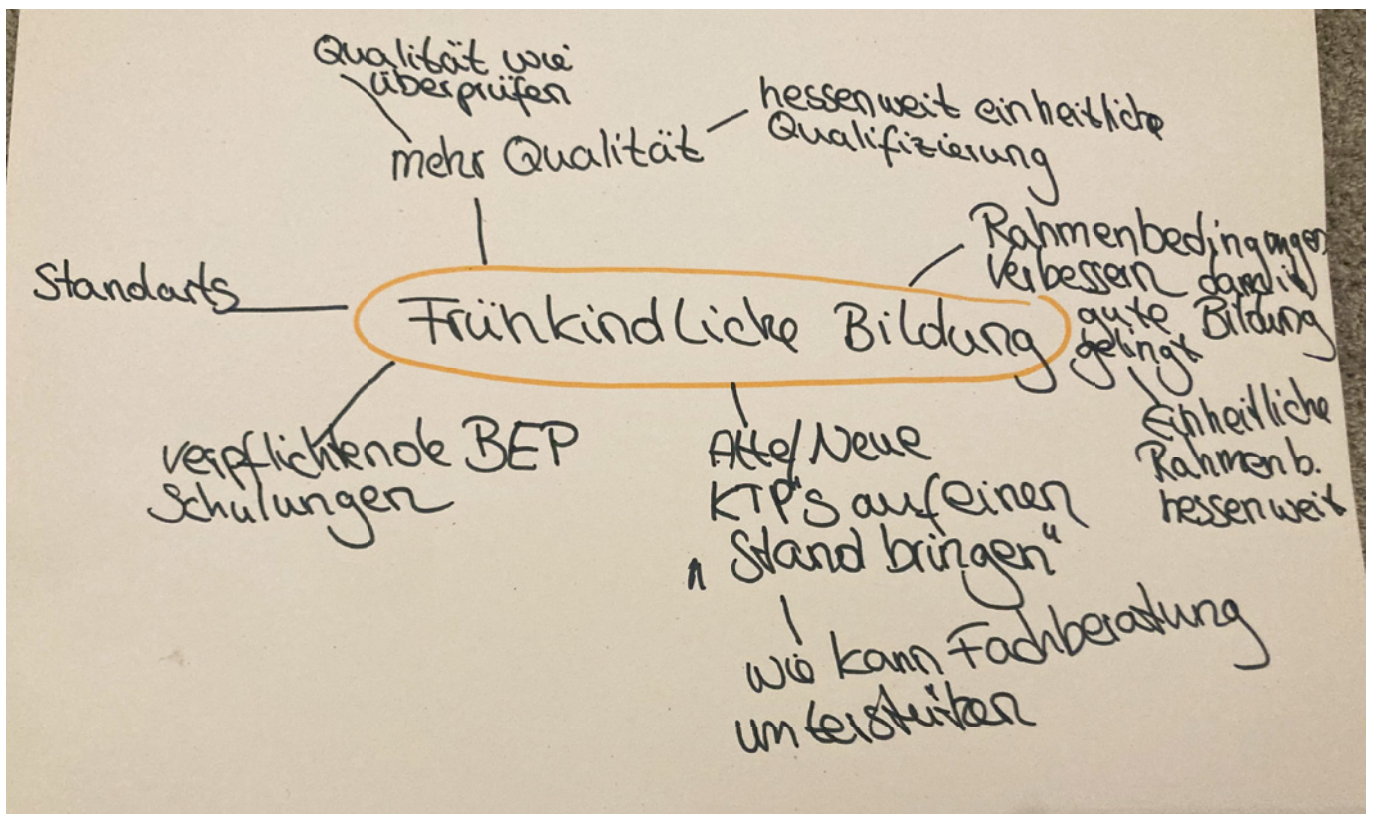 Qualität wie
überprüfen
mehr Qualität
hessenweit einheitliche
Qualifizierung
Standarts
Frühkindliche Bildung
Rahmenbedingungen
verbessern damit
gute Bildung
gelingt
Einheitliche
Rahmenb.
hessenweit
verpflichtende BEP
Schulungen
Alte/Neue
KTP's auf einen
„Stand bringen“
wie kann Fachberatung
unterstützen